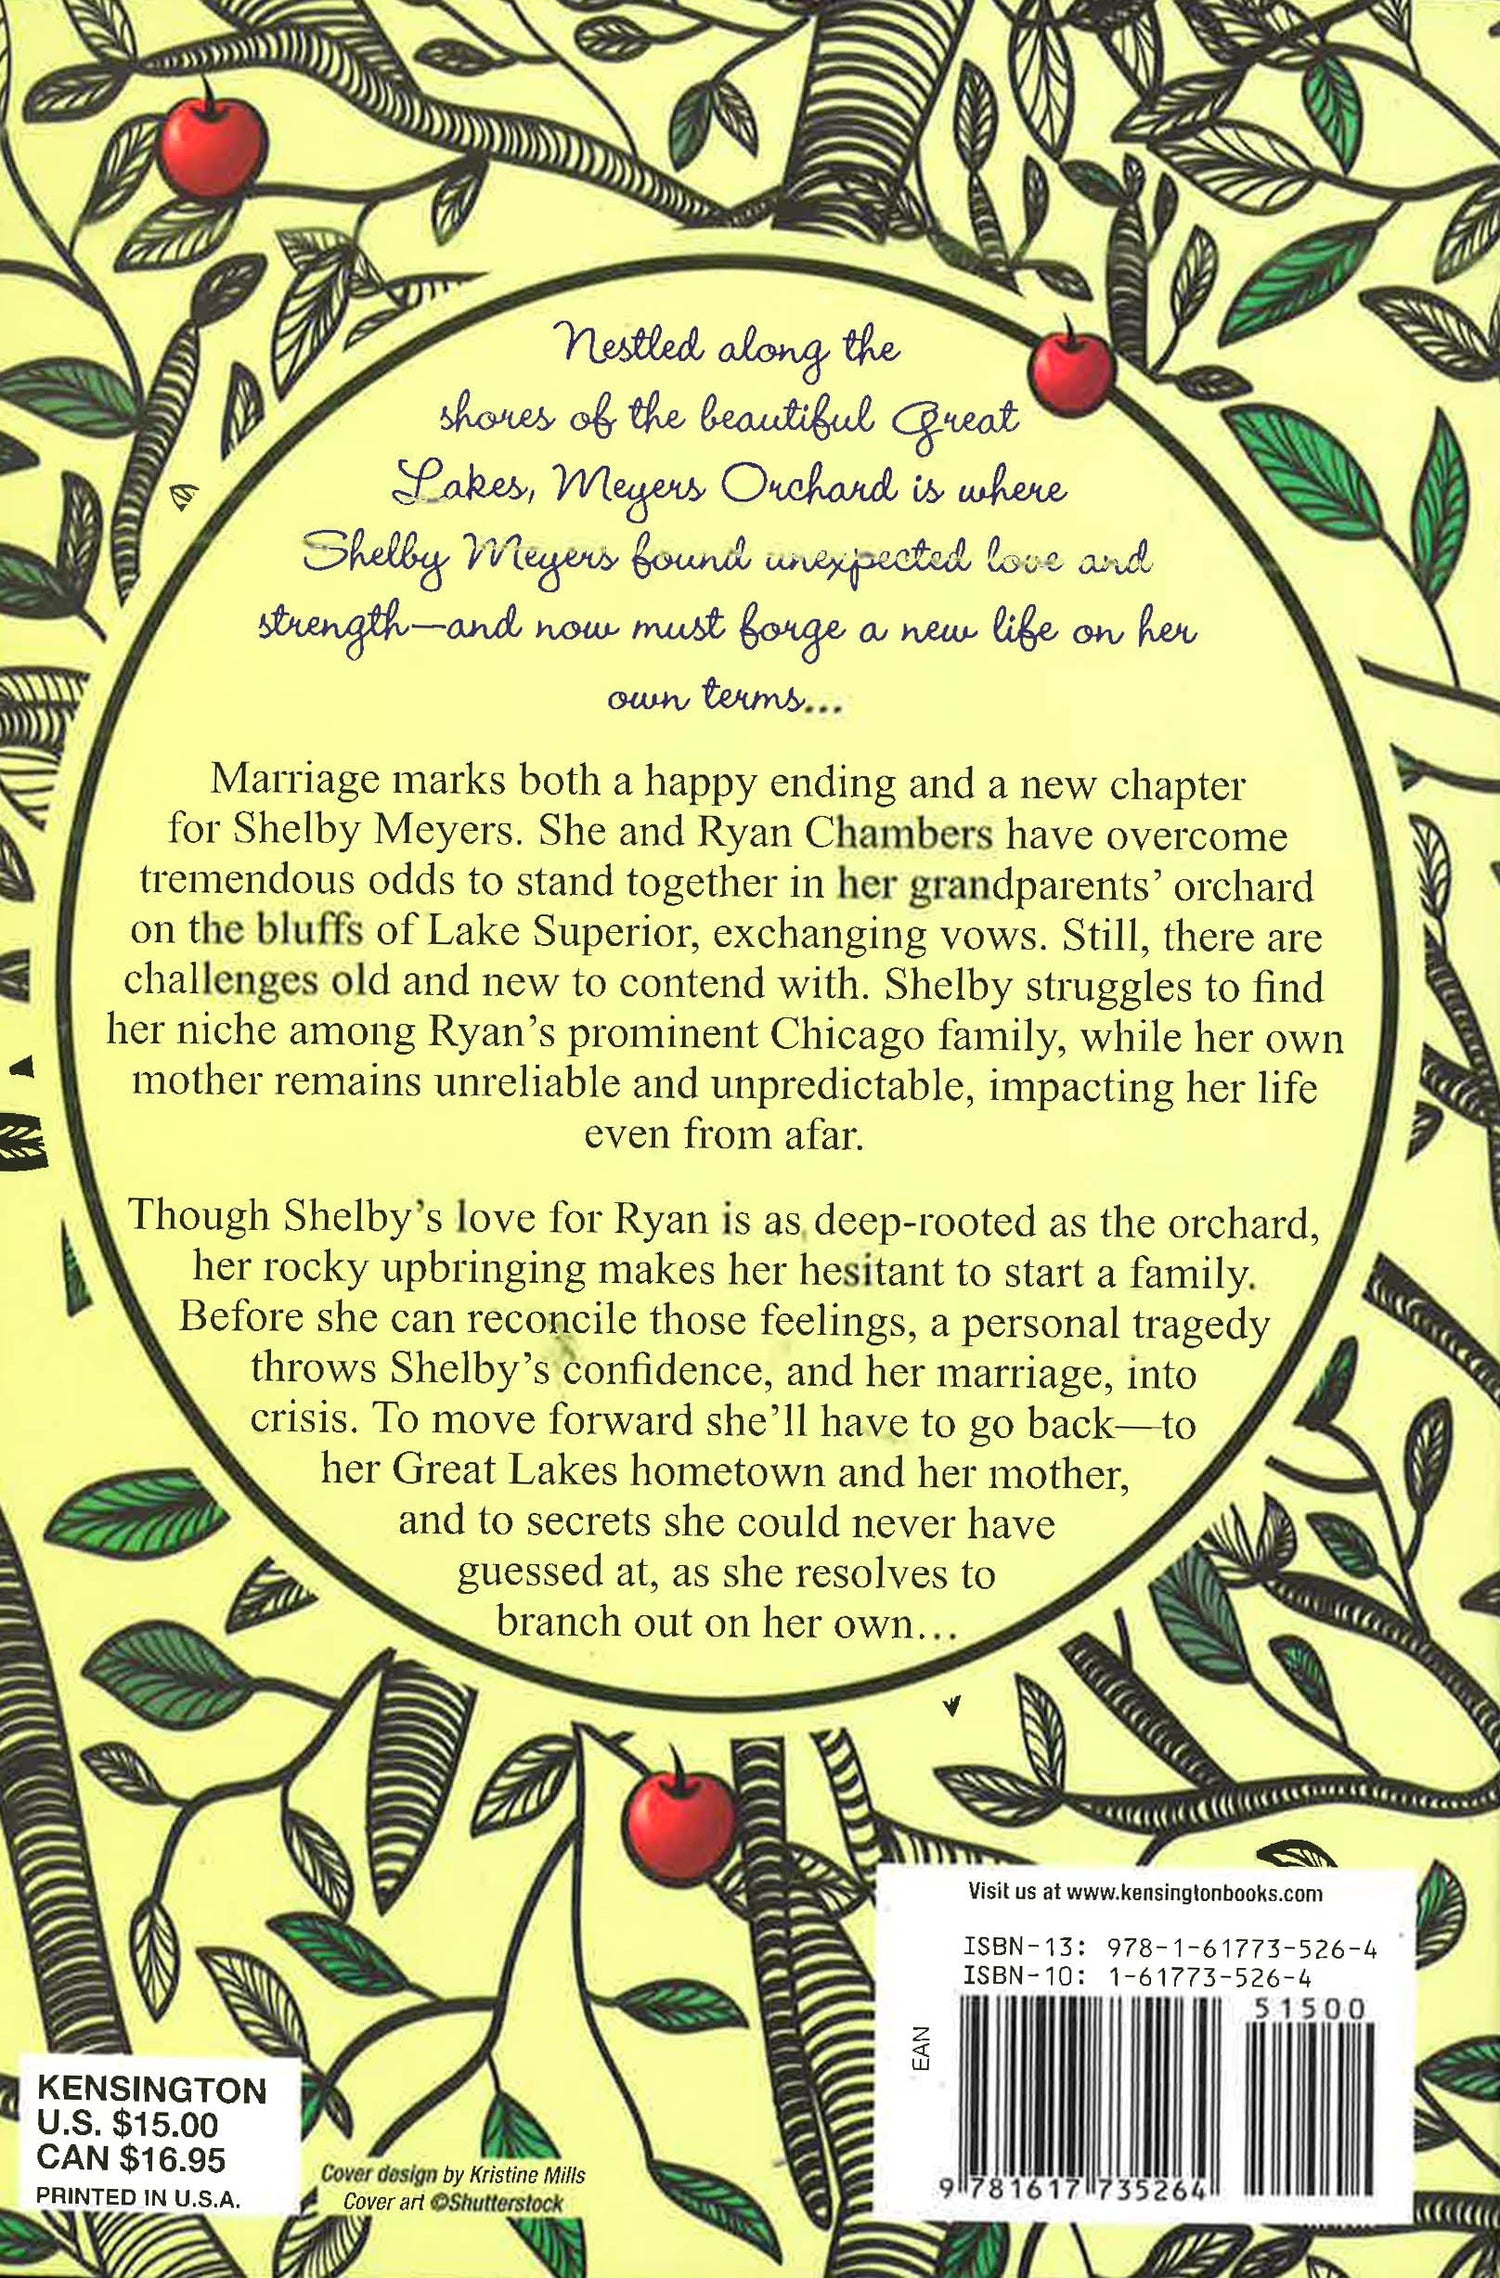 Nestled along the
shores of the beautiful Great
Lakes, Meyers Orchard is where
Shelby Meyers found unexpected love and
strength—and now must forge a new life on her
own terms...
Marriage marks both a happy ending and a new chapter
for Shelby Meyers. She and Ryan Chambers have overcome
tremendous odds to stand together in her grandparents’ orchard
on the bluffs of Lake Superior, exchanging vows. Still, there are
challenges old and new to contend with. Shelby struggles to find
her niche among Ryan’s prominent Chicago family, while her own
mother remains unreliable and unpredictable, impacting her life
even from afar.
Though Shelby’s love for Ryan is as deep-rooted as the orchard,
her rocky upbringing makes her hesitant to start a family.
Before she can reconcile those feelings, a personal tragedy
throws Shelby’s confidence, and her marriage, into
crisis. To move forward she’ll have to go back—to
her Great Lakes hometown and her mother,
and to secrets she could never have
guessed at, as she resolves to
branch out on her own…
Visit us at www.kensingtonbooks.com
ISBN-13: 978-1-61773-526-4
ISBN-10: 1-61773-526-4
51500
EAN
9 781617 735264
KENSINGTON
U.S. $15.00
CAN $16.95
PRINTED IN U.S.A.
Cover design by Kristine Mills
Cover art ©Shutterstock